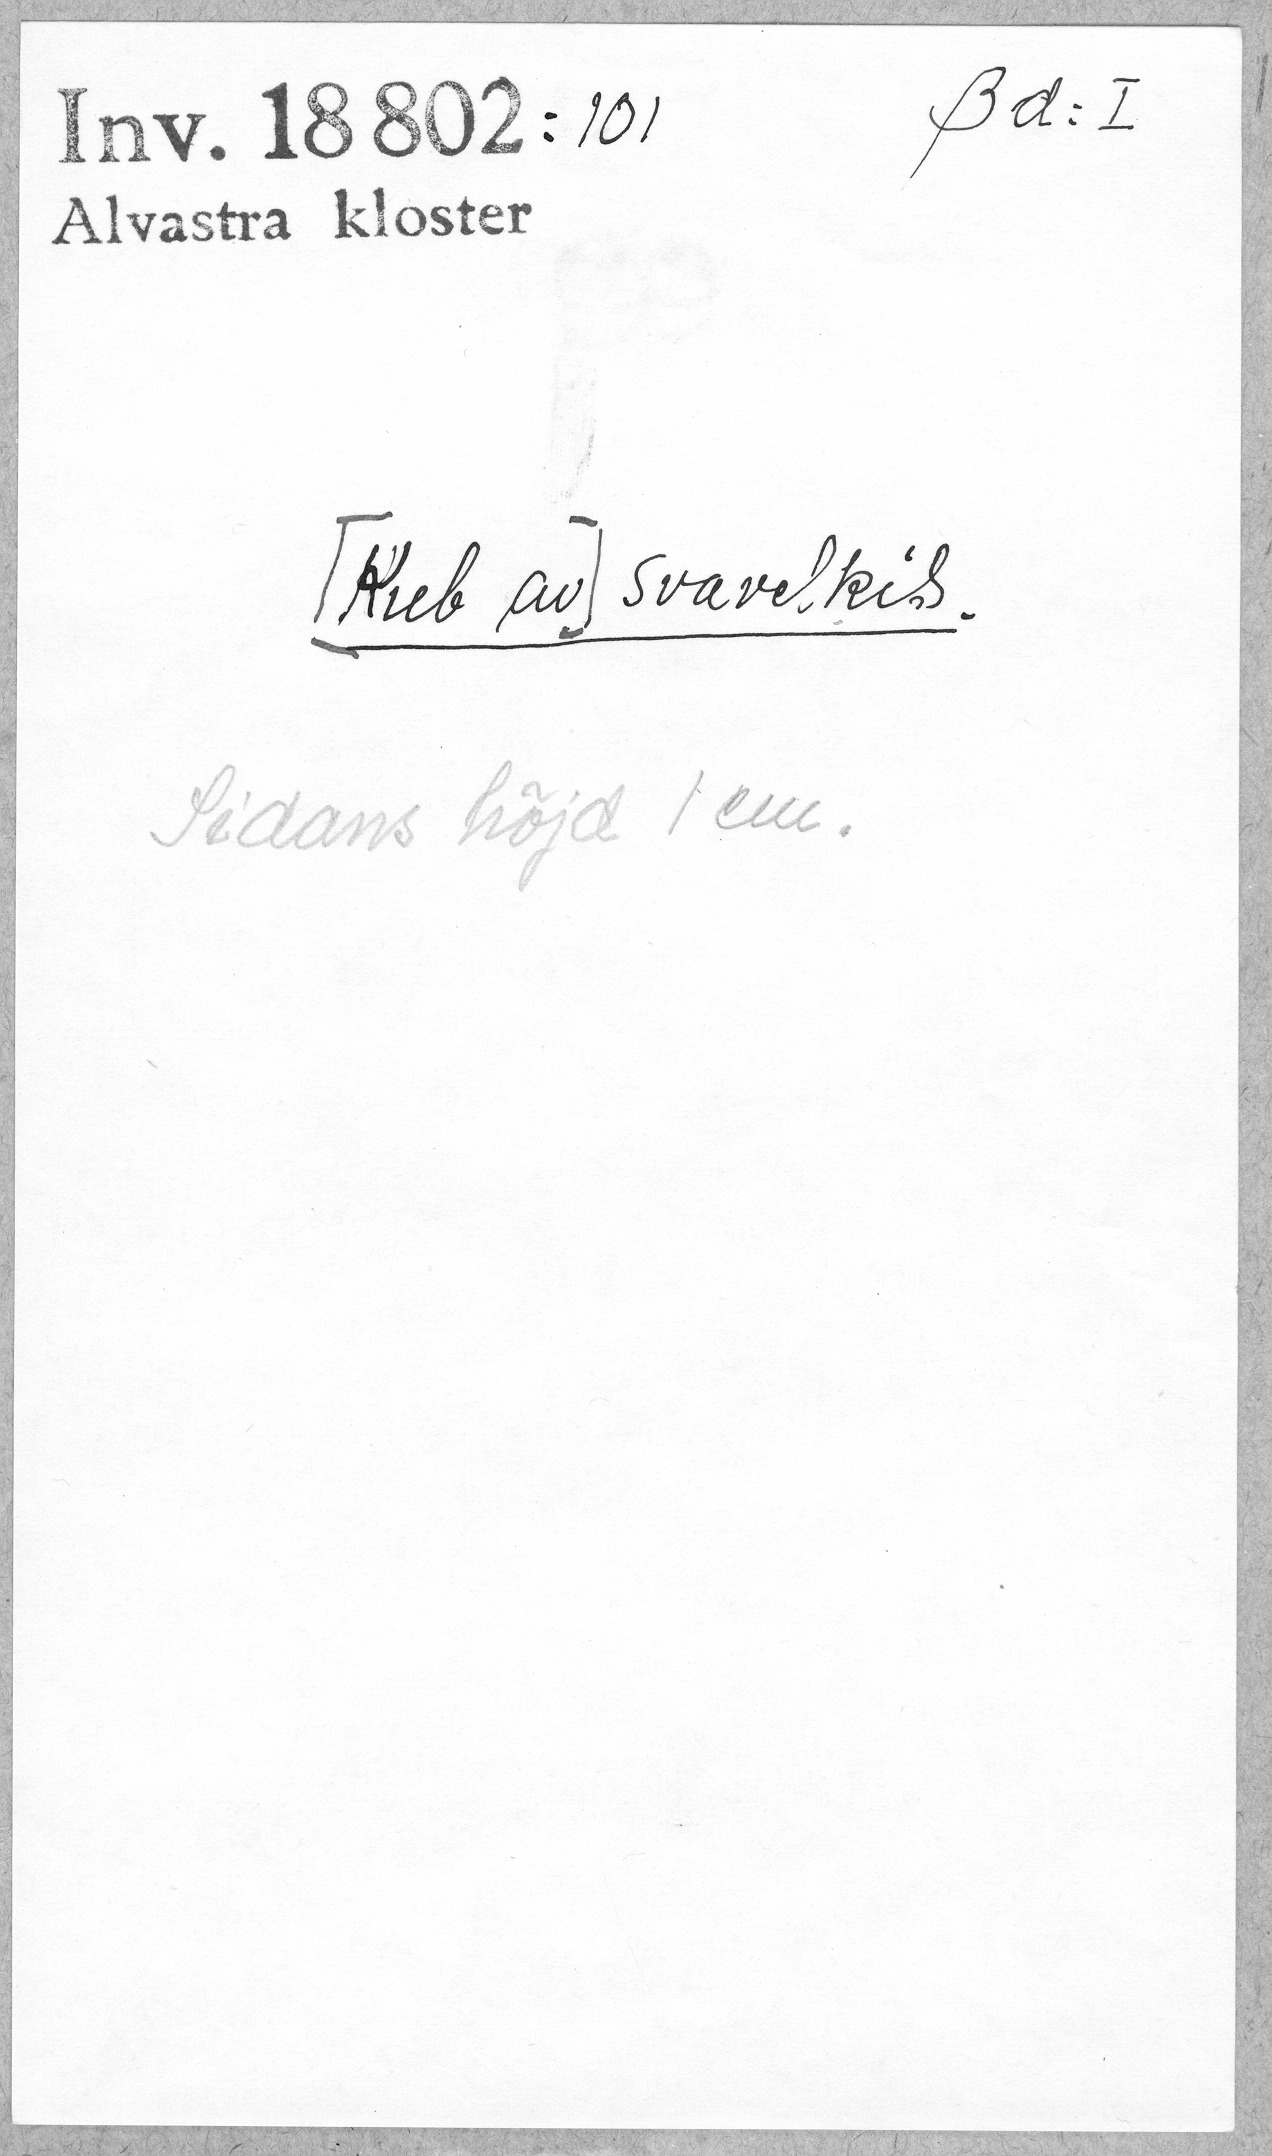 Inv. 18 802:101
β d: I
Alvastra kloster
[Kub av] svavelkis.
Sidans höjd 1 cm.